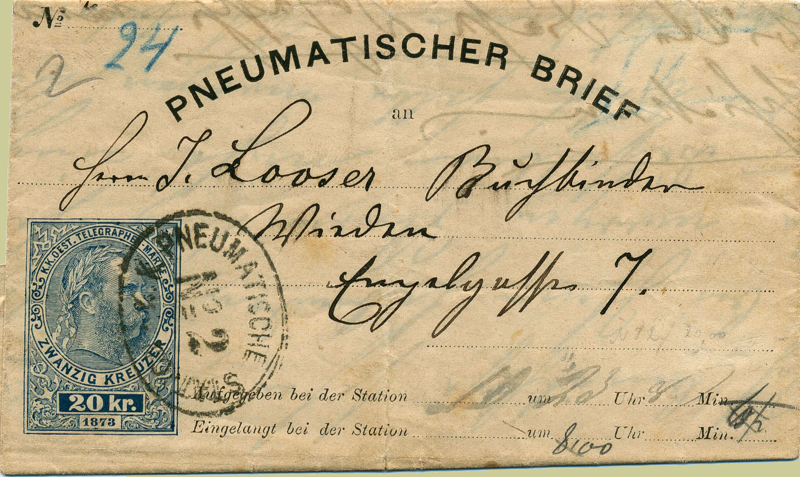 №
24
PNEUMATISCHER BRIEF
an
Herrn J. Looser Buchbinder
Wieden
Engelgasse 7.
K.K. OEST. TELEGRAPHEN-MARKE
ZWANZIG KREUZER
20 kr.
1873
PNEUMATISCHE
№ 2
Aufgegeben bei der Station um Uhr Min.
Eingelangt bei der Station um 8.00 Uhr Min.